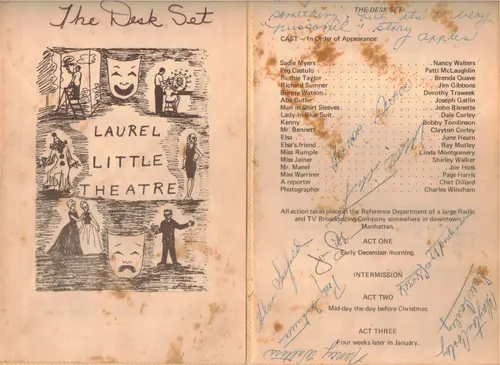 The Desk Set
LAUREL
LITTLE
THEATRE
THE DESK SET
something, but it's a very
story
CAST - In Order of Appearance
Sadie Myers Nancy Walters
Peg Costulo Patti McLaughlin
Ruthie Taylor Brenda Quave
Richard Sumner Jim Gibbons
Bunny Watson Dorothy Traweek
Abe Cutler Joseph Gatlin
Man in Shirt Sleeves John Bisnette
Lady in Blue Suit Dale Corley
Kenny Bobby Tomlinson
Mr. Bennett Clayton Corley
Elsa June Hearn
Elsa's friend Ray Motley
Miss Rumple Linda Montgomery
Miss Jainer Shirley Walker
Mr. Manel Joe Hoss
Miss Warriner Page Harris
A reporter Chet Dillard
Photographer Charles Windham
All action takes place in the Reference Department of a large Radio
and TV Broadcasting Company somewhere in downtown
Manhattan.
ACT ONE
Early December morning.
INTERMISSION
ACT TWO
Mid-day the day before Christmas.
ACT THREE
Four weeks later in January.
Nancy Walters